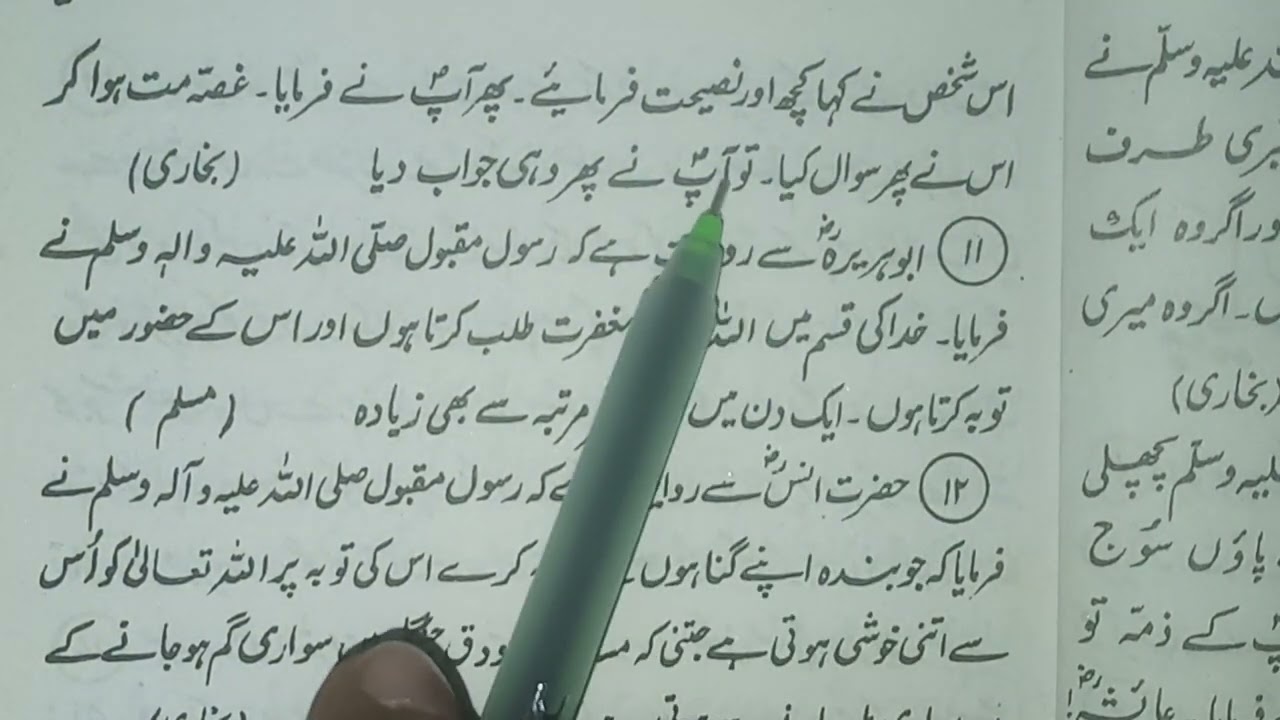 اس شخص نے کہا کچھ اور نصیحت فرمایئے۔ پھر آپؐ نے فرمایا۔ غصّہ مت ہوا کر
اس نے پھر سوال کیا۔ تو آپؐ نے پھر وہی جواب دیا (بخاری)
۱۱ ابوہریرہؓ سے ہے کہ رسول مقبول صلّی اللہ علیہ و الہٖ وسلم نے
فرمایا۔ خدا کی قسم میں مغفرت طلب کرتا ہوں اور اس کے حضور میں
توبہ کرتا ہوں۔ ایک دن میں مرتبہ سے بھی زیادہ (مسلم)
۱۲ حضرت انسؓ سے کہ رسول مقبول صلی اللہ علیہ و آلہ وسلم نے
فرمایا کہ جو بندہ اپنے گناہوں کرے اس کی توبہ پر اللہ تعالیٰ کو اُس
سے اتنی خوشی ہوتی ہے جتنی کہ سواری گم ہو جانے کے
علیہ وسلّم نے
میری طرف
اور اگر وہ ایک
۔ اگر وہ میری
(بخاری)
علیہ وسلّم پچھلی
پاؤں سُوج
کے ذمّہ تو
عائشہؓ!